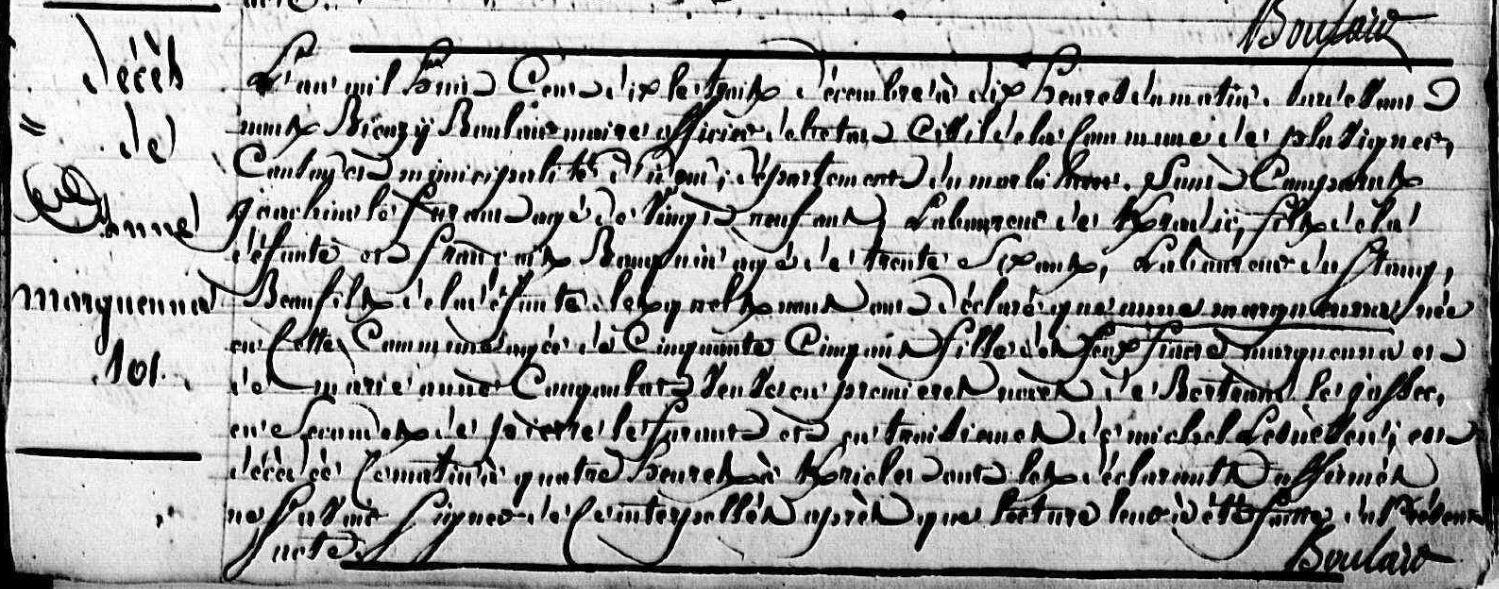 Boulaire
décès
de
anne
marguenna
101.
L'an mil huit Cent dix le trois décembre à dix heures du matin. Pardevant
nous Bieuzÿ Boulaire maire officier de letat Civil de la Commune de pluvigner,
Canton et municipalité d'idem, département du morbihan. Sont Comparus
joachim le furaut agé de vingt neuf ans, Laboureur de fils de la
défunte et françois agé de trente Six ans, Laboureur du Stang,
Beaufils de la défunte. lesquels nous ont déclaré que anne marguenna née
en Cette Commune agée de Cinquante Cinq ans fille de feux fiacre marguenna et
de marie anne veuve en premieres noces de Bertrand le
en Secondes de pierre le furaut et en troisiemes de michel est
décédée Ce matin à quatre heures à dont les déclarants affirmés
ne Savoir Signer de Ce interpellés après que lecture leur à été faitte du Présent
acte.
Boulaire